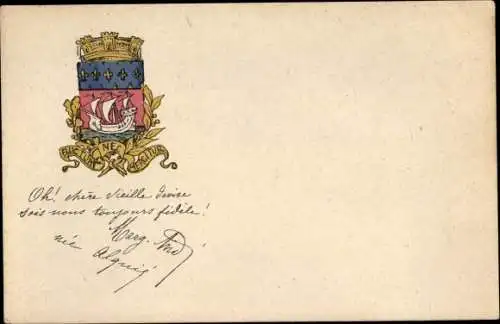 FLUCTUAT NEC MERGITUR
Oh! chère vieille devise
sois nous toujours fidèle!
Marg.
née